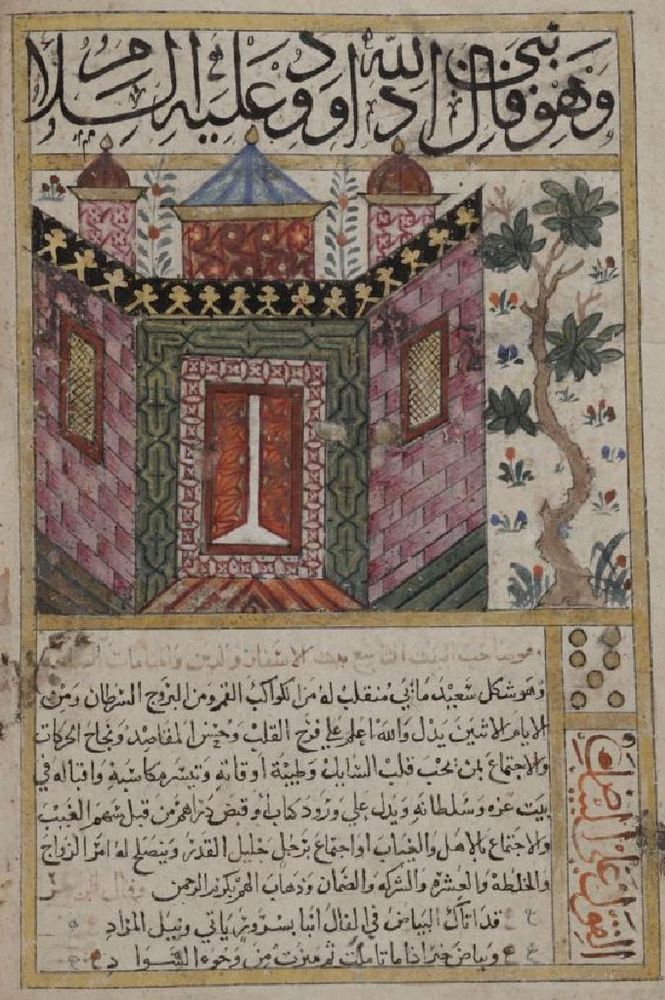 وهو فال نبي الله داوود عليه السلام
وهو صاحب البيت التاسع بيت الاسفار والدين والمنامات
وهو شكل سعيد مائي منقلب له من الكواكب القمر ومن البروج السرطان ومن
الايام الاثنين يدل والله اعلم على فرح القلب وحسن المقاصد ونجاح الحركات
والاجتماع بمن يحب قلب السايل وطيبة أوقاته وتيسر مكاسبه واقباله في
بيت عزه وسلطانه ويدل على ورود كتاب أو قبض دراهم من قبل سهم الغيب
والاجتماع بالاهل والغياب او اجتماع برجل جليل القدر ويصلح له امر الزواج
والخلطة والعشرة والشركه والضمان وذهاب الهم بكون الرحمن
قد اتاك البياض في الفال انبا بسرور ياتي ونيل المراد
وبياض اذا ما تاملت ثم ميزت من وجوه السواد
القول على البياض